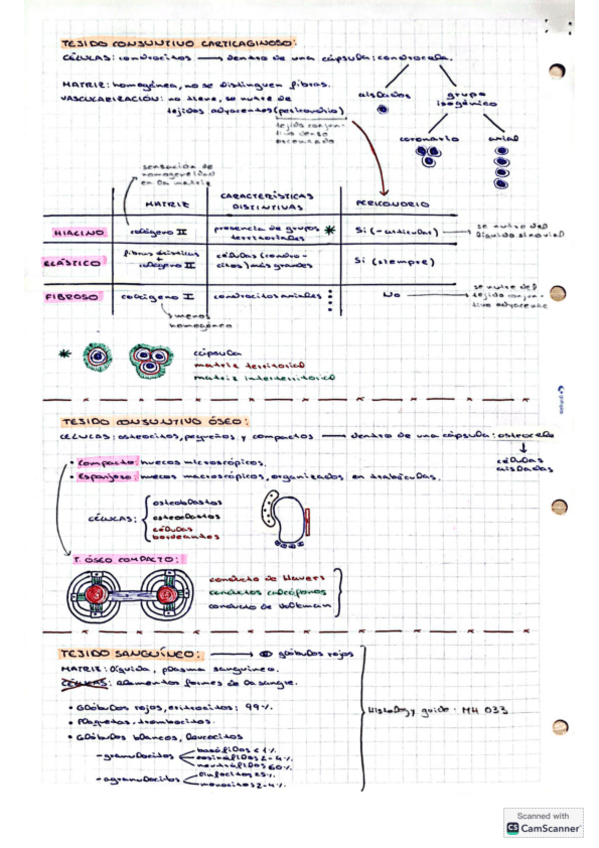 TEJIDO CONJUNTIVO CARTILAGINOSO:
CÉLULAS: condrocitos → dentro de una cápsula: condrocela.
MATRIZ: homogénea, no se distinguen fibras.
VASCULARIZACIÓN: no tiene, se nutre de
tejidos adyacentes (pericondrio)
tejido conjun-
tivo denso
aislados
grupo
isogénico
coronario
axial
sensación de
homogeneidad
en la matriz
MATRIZ
CARACTERÍSTICAS
DISTINTIVAS
PERICONDRIO
HIALINO
colágeno II
presencia de grupos
territoriales *
Sí (-articular) →
se nutre del
líquido sinovial
ELÁSTICO
fibras elásticas
+
colágeno II
células (condro-
citos) más grandes
Sí (siempre)
FIBROSO
colágeno I
condrocitos axiales
No →
se nutre del
tejido conjun-
tivo adyacente
menos
homogéneo
*
cápsula
matriz territorial
matriz interterritorial
TEJIDO CONJUNTIVO ÓSEO:
CÉLULAS: osteocitos, pequeños y compactos → dentro de una cápsula: osteocela
células
aisladas
• Compacto: huecos microscópicos.
• Esponjoso: huecos macroscópicos, organizados en trabéculas.
CÉLULAS:
osteoblastos
osteoclastos
células
bordeantes
T. ÓSEO COMPACTO:
conducto de Havers
conductos calcóforos
conducto de Volkman
TEJIDO SANGUÍNEO: → glóbulos rojos
MATRIZ: líquida, plasma sanguínea.
CÉLULAS: elementos formes de la sangre.
• Glóbulos rojos, eritrocitos: 99%.
• Plaquetas, trombocitos.
• Glóbulos blancos, leucocitos
- granulocitos
basófilos <1%
eosinófilos 2-4%
neutrófilos 60%
- agranulocitos
linfocitos 25%
monocitos 2-4%
Histology guide: MH 033
Scanned with
CS CamScanner